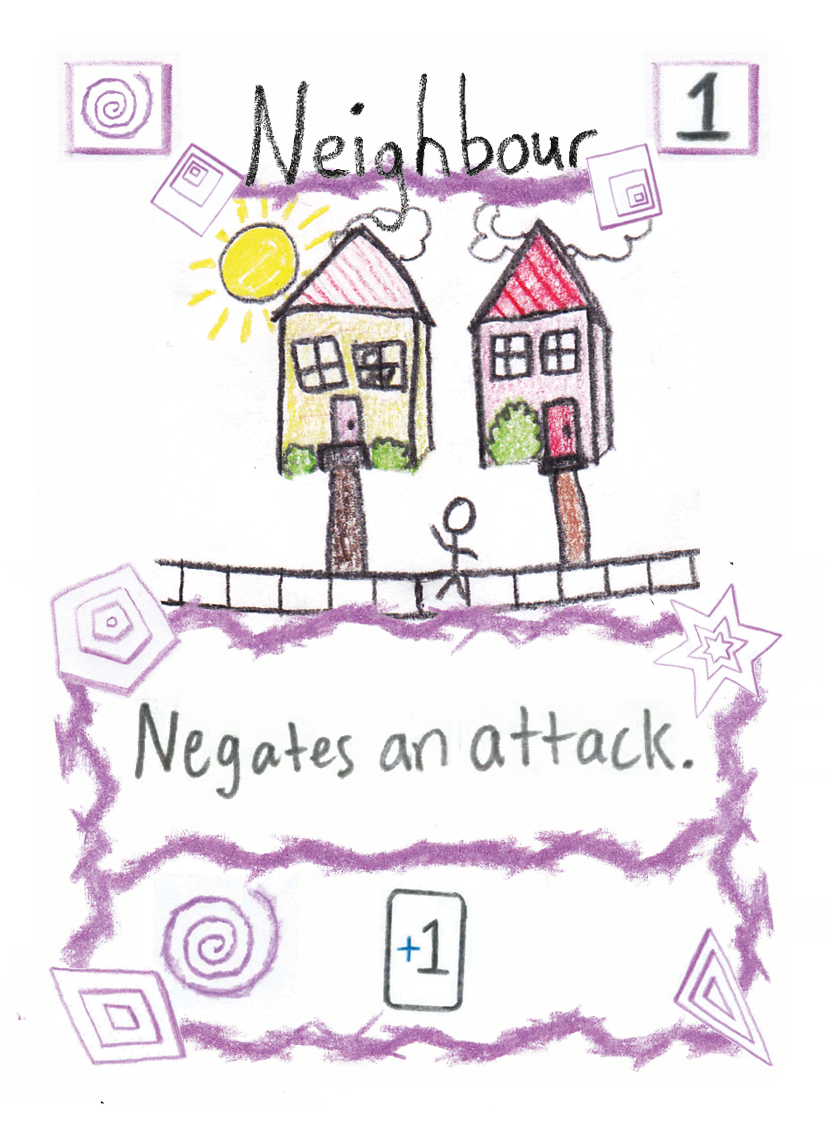 Neighbour
1
Negates an attack.
+1